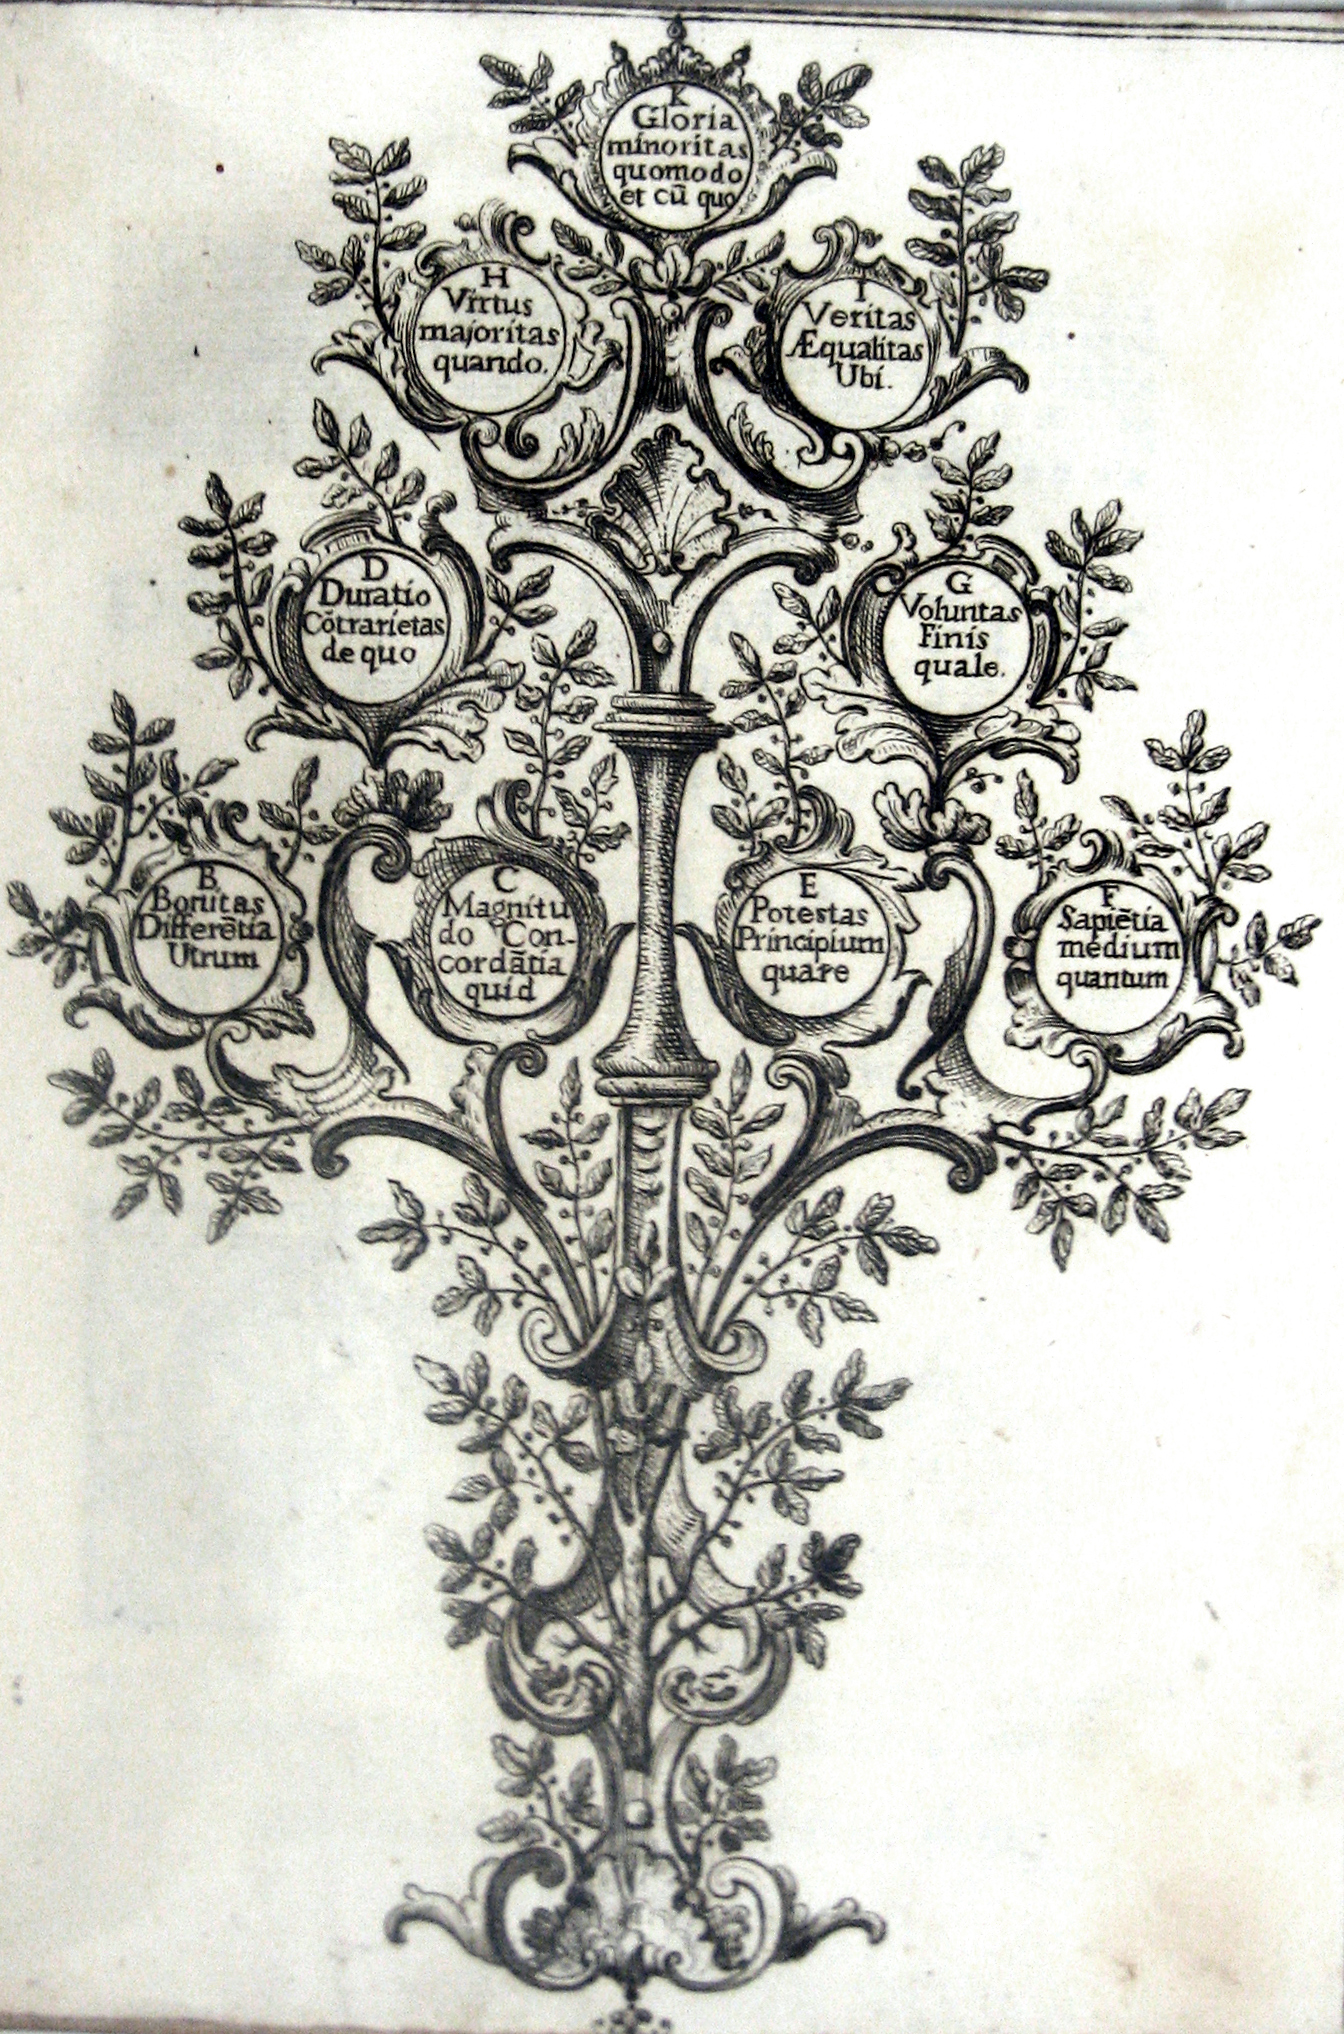 K
Gloria
minoritas
quomodo
et cū quo
H
Virtus
majoritas
quando.
I
Veritas
Æqualitas
Ubi.
D
Duratio
Cōtrarietas
de quo
G
Voluntas
Finis
quale.
B
Bonitas
Differētia
Utrum
C
Magnitu
do Con-
cordātia
quid
E
Potestas
Principium
quare
F
Sapiētia
medium
quantum